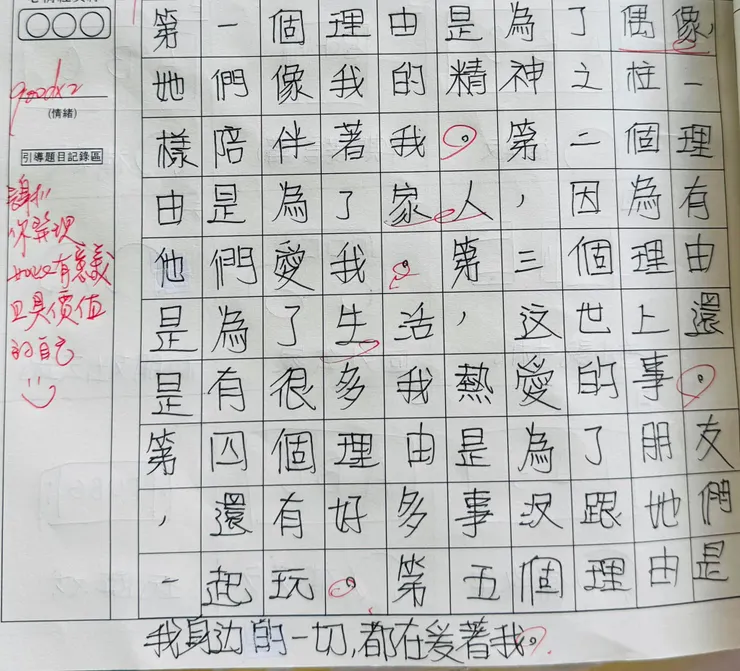 goodx2
(情緒)
引導題目記錄區
你發現
如此有意義
且具價值
的自己
第一個理由是為了偶像，
她們像我的精神之柱一
樣陪伴著我。第二個理
由是為了家人，因為有
他們愛我。第三個理由
是為了生活，这世上還
是有很多我熱愛的事。
第四個理由是為了朋友
，還有好多事沒跟她們
一起玩。第五個理由是
我身边的一切,都在爱著我。